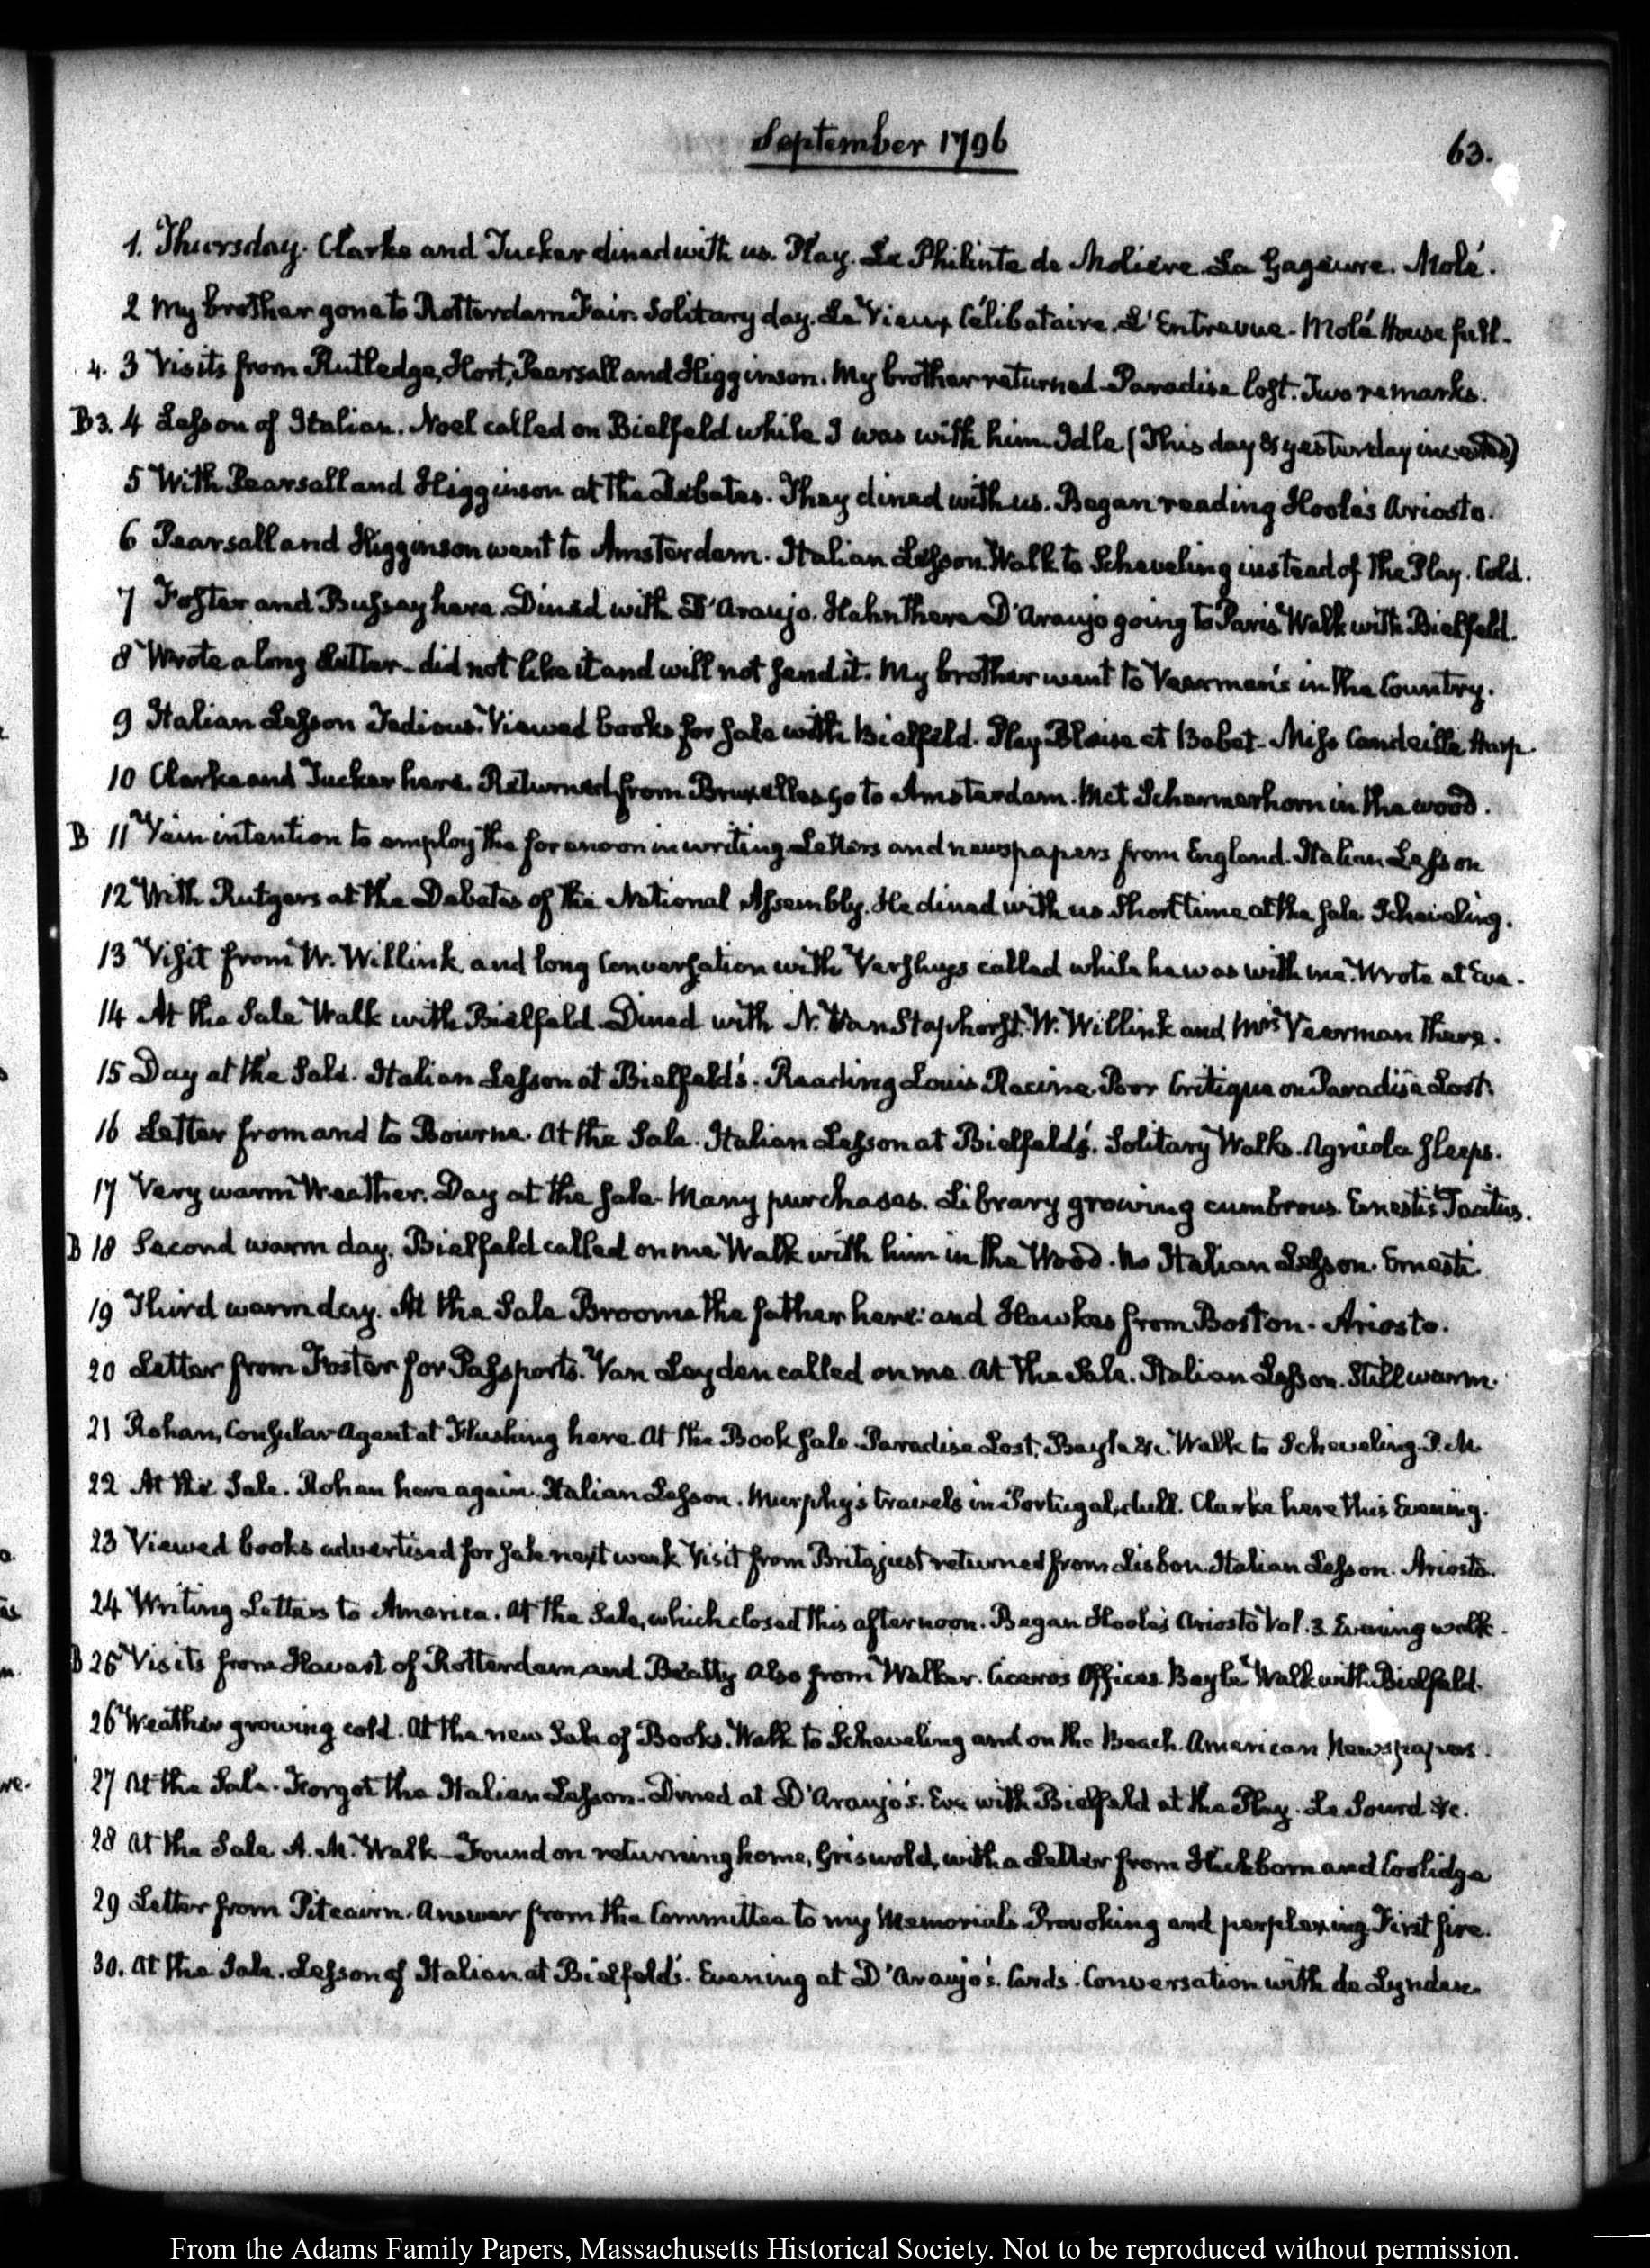 September 1796
63.
1. Thursday. Clarke and Tucker dined with us. Play. Le Philinte de Moliére. La Gageure. Molé.
2 My brother gone to Rotterdam Fair. Solitary day. Le Vieux Célibataire. L'Entrevue. Molé House full.
4. 3 Visits from Rutledge, Hort, Pearsall and Higginson. My brother returned. Paradise lost. Two remarks.
B 3. 4 Lesson of Italian. Noel called on Bielfeld while I was with him. Idle (This day & yesterday inverted)
5 With Pearsall and Higginson at the Debates. They dined with us. Began reading Hoole's Ariosto.
6 Pearsall and Higginson went to Amsterdam. Italian Lesson. Walk to Scheveling instead of the Play. Cold.
7 Foster and Bussey here. Dined with D'Araujo. Hahn there D'Araujo going to Paris. Walk with Bielfeld.
8 Wrote a long Letter - did not like it and will not send it. My brother went to Veerman's in the Country.
9 Italian Lesson Tedious. Viewed books for sale with Bielfeld. Play. Blaise et Babet. Miss Candeille Harp.
10 Clarke and Tucker here. Returned from Bruxelles go to Amsterdam. Met Schermerhorn in the wood.
B 11 Vain intention to employ the forenoon in writing. Letters and newspapers from England. Italian Lesson
12 With Rutgers at the Debates of the National Assembly. He dined with us Short time at the sale. Scheveling.
13 Visit from W. Willink, and long Conversation with Vershuys called while he was with me. Wrote at Eve.
14 At the Sale Walk with Bielfeld. Dined with N. Van Staphorst. W. Willink and Mrs Veerman there.
15 Day at the Sale. Italian Lesson at Bielfeld's. Reading Louis Racine. Poor Critique on Paradise Lost.
16 Letter from and to Bourne. At the Sale. Italian Lesson at Bielfeld's. Solitary Walks. Agricola sleeps.
17 Very warm Weather. Day at the sale. Many purchases. Library growing cumbrous. Ernesti's Tacitus.
B 18 Second warm day. Bielfeld called on me Walk with him in the Wood. No Italian Lesson. Ernesti
19 Third warm day. At the Sale Broome the father here: and Hawkes from Boston. Ariosto.
20 Letter from Foster for Passports. Van Leyden called on me. At the Sale. Italian Lesson. Still warm.
21 Rohan, Consular Agent at Flushing here. At the Book sale. Paradise Lost, Bayle &c. Walk to Scheveling. P.M.
22 At the Sale. Rohan here again. Italian Lesson. Murphy's travels in Portugal, dull. Clarke here this Evening.
23 Viewed books advertised for sale next week. Visit from Brito, just returned from Lisbon. Italian Lesson. Ariosto.
24 Writing Letters to America. At the Sale, which closed this afternoon. Began Hoole's Ariosto Vol. 3. Evening walk.
B 25 Visits from Havart of Rotterdam, and Beatty Also from Walker. Ciceros Offices. Bayle Walk with Bielfeld.
26 Weather growing cold. At the new Sale of Books. Walk to Scheveling and on the Beach. American Newspapers.
27 At the Sale. Forgot the Italian Lesson. Dined at D'Araujo's. Eve with Bielfeld at the Play. Le Sourd &c.
28 At the Sale A.M. Walk - Found on returning home, Griswold, with a Letter from Hichborn and Coolidge
29 Letter from Pitcairn. Answer from the Committee to my Memorials. Provoking and perplexing. First fire.
30. At the Sale. Lesson of Italian at Bielfeld's. Evening at D'Araujo's. Cards. Conversation with de Lynden.
From the Adams Family Papers, Massachusetts Historical Society. Not to be reproduced without permission.